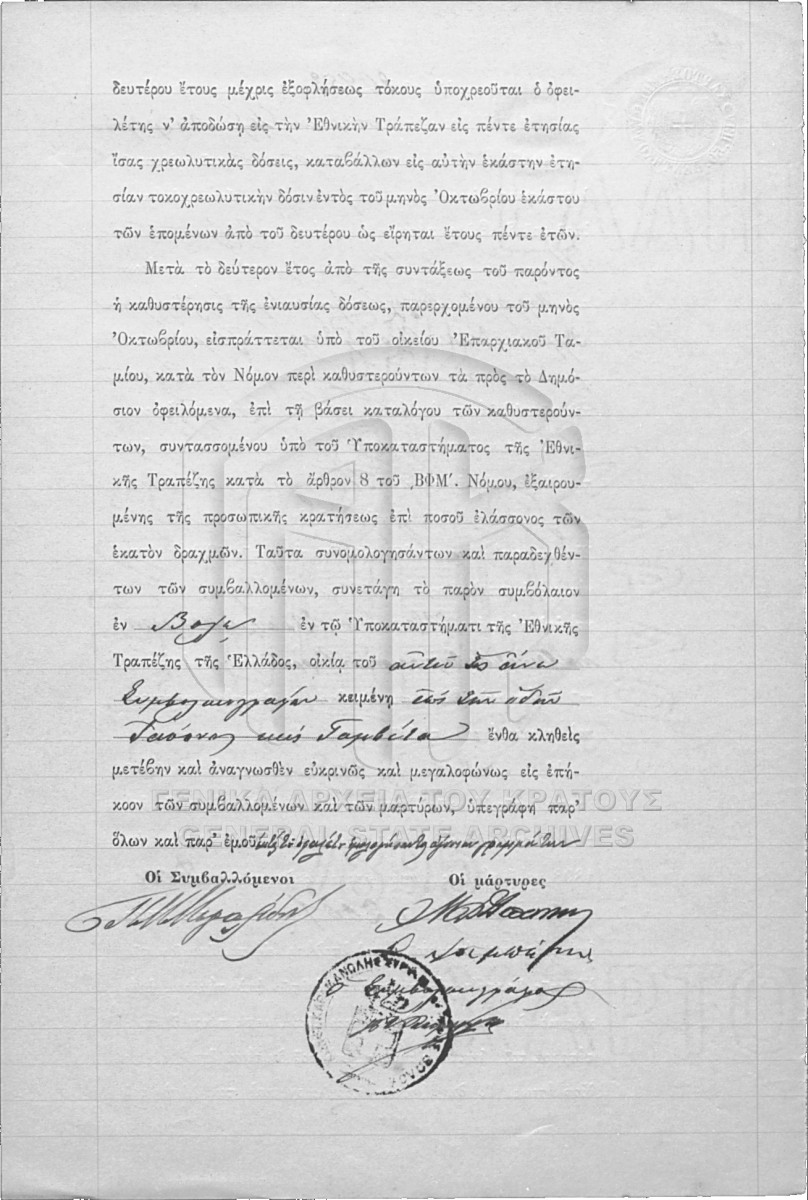 δευτέρου ἔτους μέχρις ἐξοφλήσεως τόκους ὑποχρεοῦται ὁ ὀφει-
λέτης ν' ἀποδώσῃ εἰς τὴν Ἐθνικὴν Τράπεζαν εἰς πέντε ἐτησίας
ἴσας χρεωλυτικὰς δόσεις, καταβάλλων εἰς αὐτὴν ἑκάστην ἐτη-
σίαν τοκοχρεωλυτικὴν δόσιν ἐντὸς τοῦ μηνὸς Ὀκτωβρίου ἑκάστου
τῶν ἑπομένων ἀπὸ τοῦ δευτέρου ὡς εἴρηται ἔτους πέντε ἐτῶν.
Μετὰ τὸ δεύτερον ἔτος ἀπὸ τῆς συντάξεως τοῦ παρόντος
ἡ καθυστέρησις τῆς ἐνιαυσίας δόσεως, παρερχομένου τοῦ μηνὸς
Ὀκτωβρίου, εἰσπράττεται ὑπὸ τοῦ οἰκείου Ἐπαρχιακοῦ Τα-
μίου, κατὰ τὸν Νόμον περὶ καθυστερούντων τὰ πρὸς τὸ Δημό-
σιον ὀφειλόμενα, ἐπὶ τῇ βάσει καταλόγου τῶν καθυστερούν-
των, συντασσομένου ὑπὸ τοῦ Ὑποκαταστήματος τῆς Ἐθνι-
κῆς Τραπέζης κατὰ τὸ ἄρθρον 8 τοῦ ͵ΒΦΜ'. Νόμου, ἐξαιρου-
μένης τῆς προσωπικῆς κρατήσεως ἐπὶ ποσοῦ ἐλάσσονος τῶν
ἑκατὸν δραχμῶν. Ταῦτα συνομολογησάντων καὶ παραδεχθέν-
των τῶν συμβαλλομένων, συνετάγη τὸ παρὸν συμβόλαιον
ἐν Βόλῳ ἐν τῷ Ὑποκαταστήματι τῆς Ἐθνικῆς
Τραπέζης τῆς Ἑλλάδος, οἰκίᾳ τοῦ
Συμβολαιογράφου κειμένῃ ἐπὶ τῶν ὁδῶν
Ἰάσονος καὶ Γαμβέτα ἔνθα κληθεὶς
μετέβην καὶ ἀναγνωσθὲν εὐκρινῶς καὶ μεγαλοφώνως εἰς ἐπή-
κοον τῶν συμβαλλομένων καὶ τῶν μαρτύρων, ὑπεγράφη παρ'
ὅλων καὶ παρ' ἐμοῦ
ΓΕΝΙΚΑ ΑΡΧΕΙΑ ΤΟΥ ΚΡΑΤΟΥΣ
GENERAL STATE ARCHIVES
Οἱ Συμβαλλόμενοι Οἱ μάρτυρες
ὁ Συμβολαιογράφος